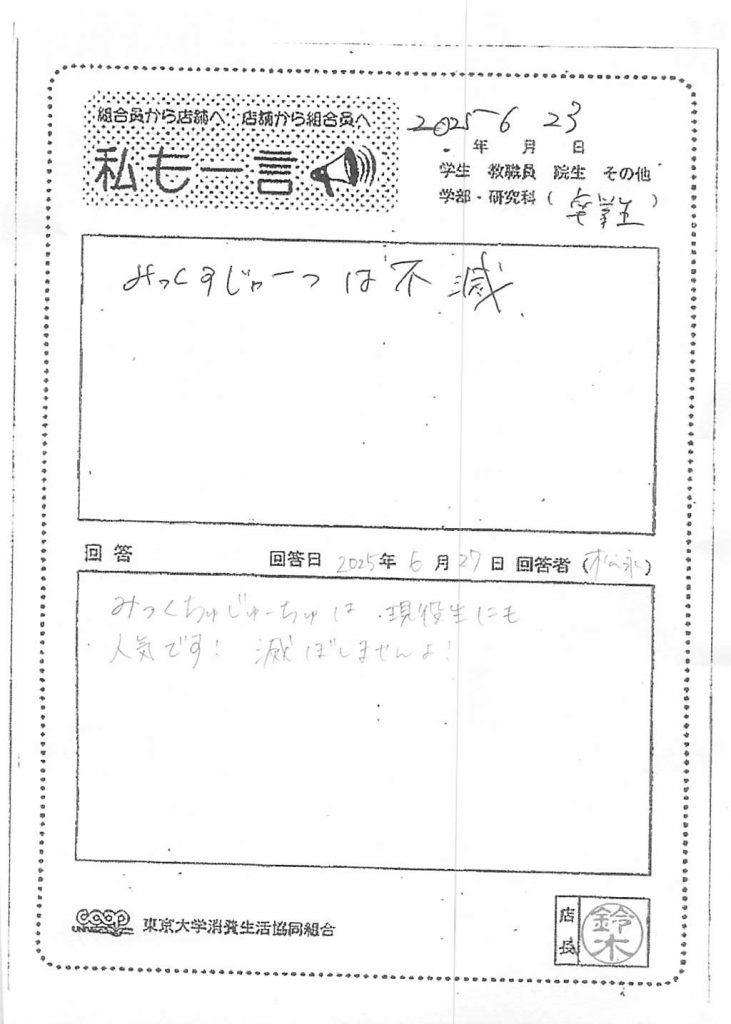 組合員から店舗へ 店舗から組合員へ
私も一言
2025 6 23
年 月 日
学生 教職員 院生 その他
学部・研究科( 卒業生 )
みっくすじゅーつは不滅
回答 回答日 2025年 6月 27日 回答者 (松永)
みっくちゅじゅーちゅは、現役生にも
人気です! 滅ぼしませんよ!
coop
UNIVERSITY
東京大学消費生活協同組合
店長 鈴木